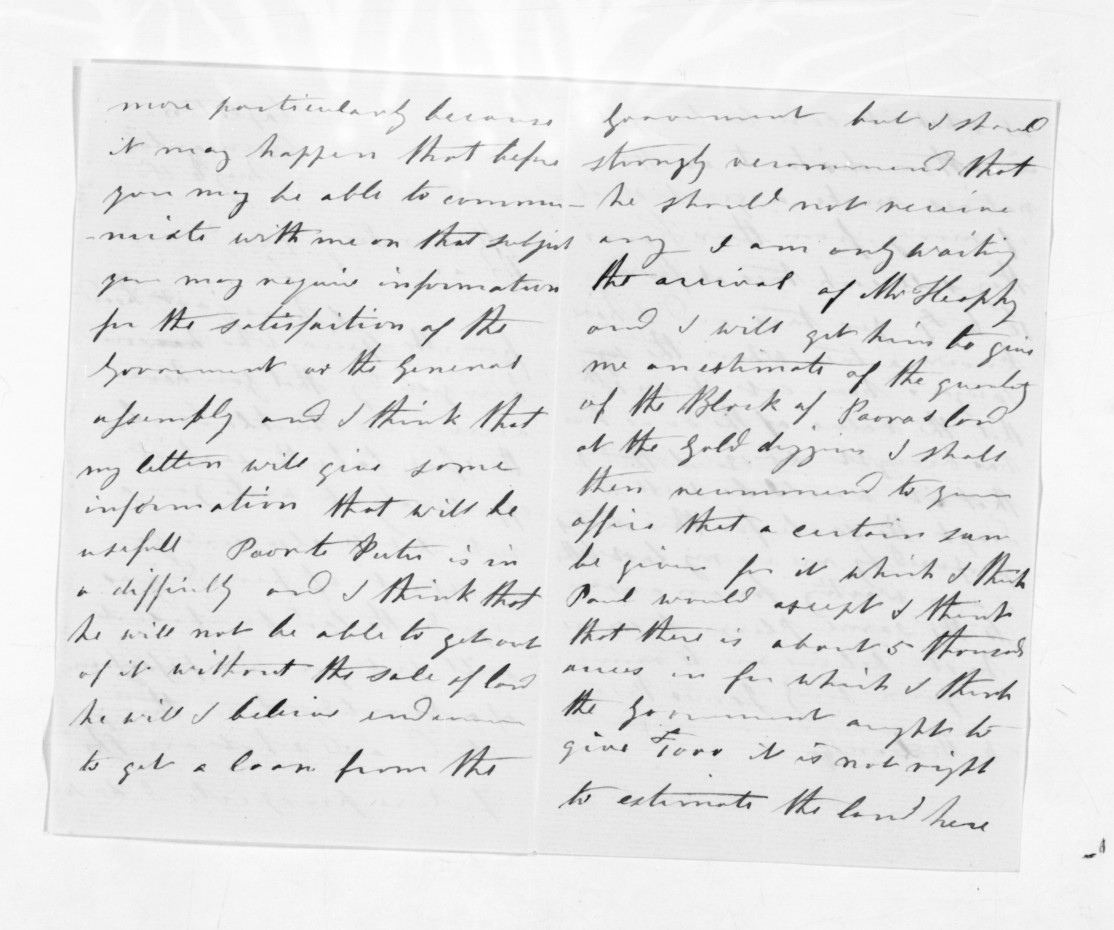 more particularly because
it may happen that before
you may be able to commu-
-nicate with me on that subject
you may require information
for the satisfaction of the
Government or the General
assembly and I think that
my letters will give some
information that will be
usefull Paora te Putu is in
a difficilty and I think that
he will not be able to get out
of it without the sale of land
he will I believe endeavour
to get a loan from the
Government but I should
strongly recommend that
he should not receive
any I am only waiting
the arrival of Mr Heaphy
and I will get him to give
me an estimate of the quantity
of the Block of Paoras land
at the Gold diggins I shall
then recommend to your
office that a certain sum
be given for it which I think
Paul would accept I think
that there is about 5 thousand
acres in for which I think
the Government ought to
give it is not right
to estimate the land here